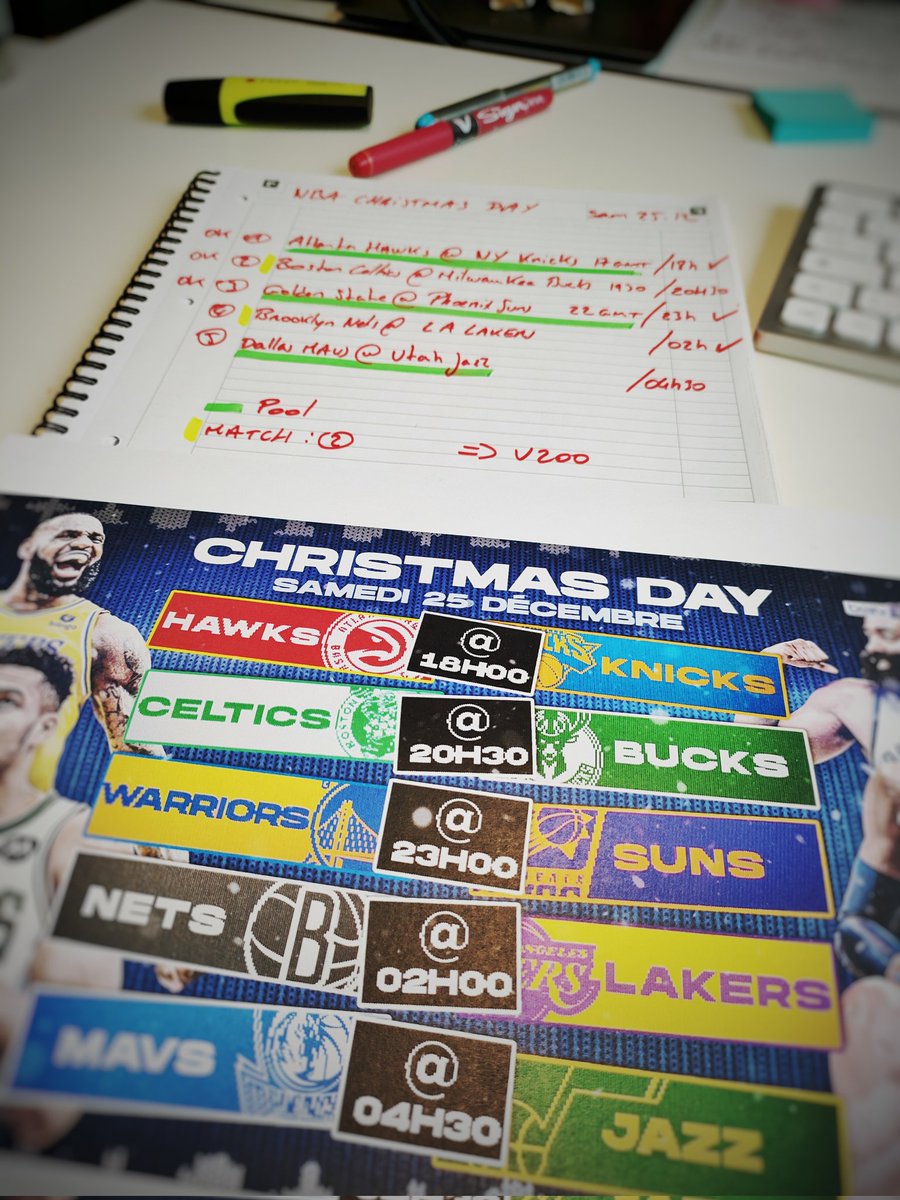 V Sign
NBA CHRISTMAS DAY Sam 25.12
OK ① Atlanta HAWKS @ NY Knicks 17 GMT /18h ✓
OK ② Boston Celtics @ Milwaukee Bucks 1930 /20H30
OK ③ Golden State @ Phoenix Sun 22 GMT /23h ✓
④ Brooklyn Nets @ LA LAKERS /02h ✓
⑤ Dallas MAVS @ Utah Jazz /04h30
Pool
MATCH : ② => V200
CHRISTMAS DAY
SAMEDI 25 DÉCEMBRE
HAWKS @ 18H00 KNICKS
CELTICS @ 20H30 BUCKS
WARRIORS @ 23H00 SUNS
NETS @ 02H00 LAKERS
MAVS @ 04H30 JAZZ